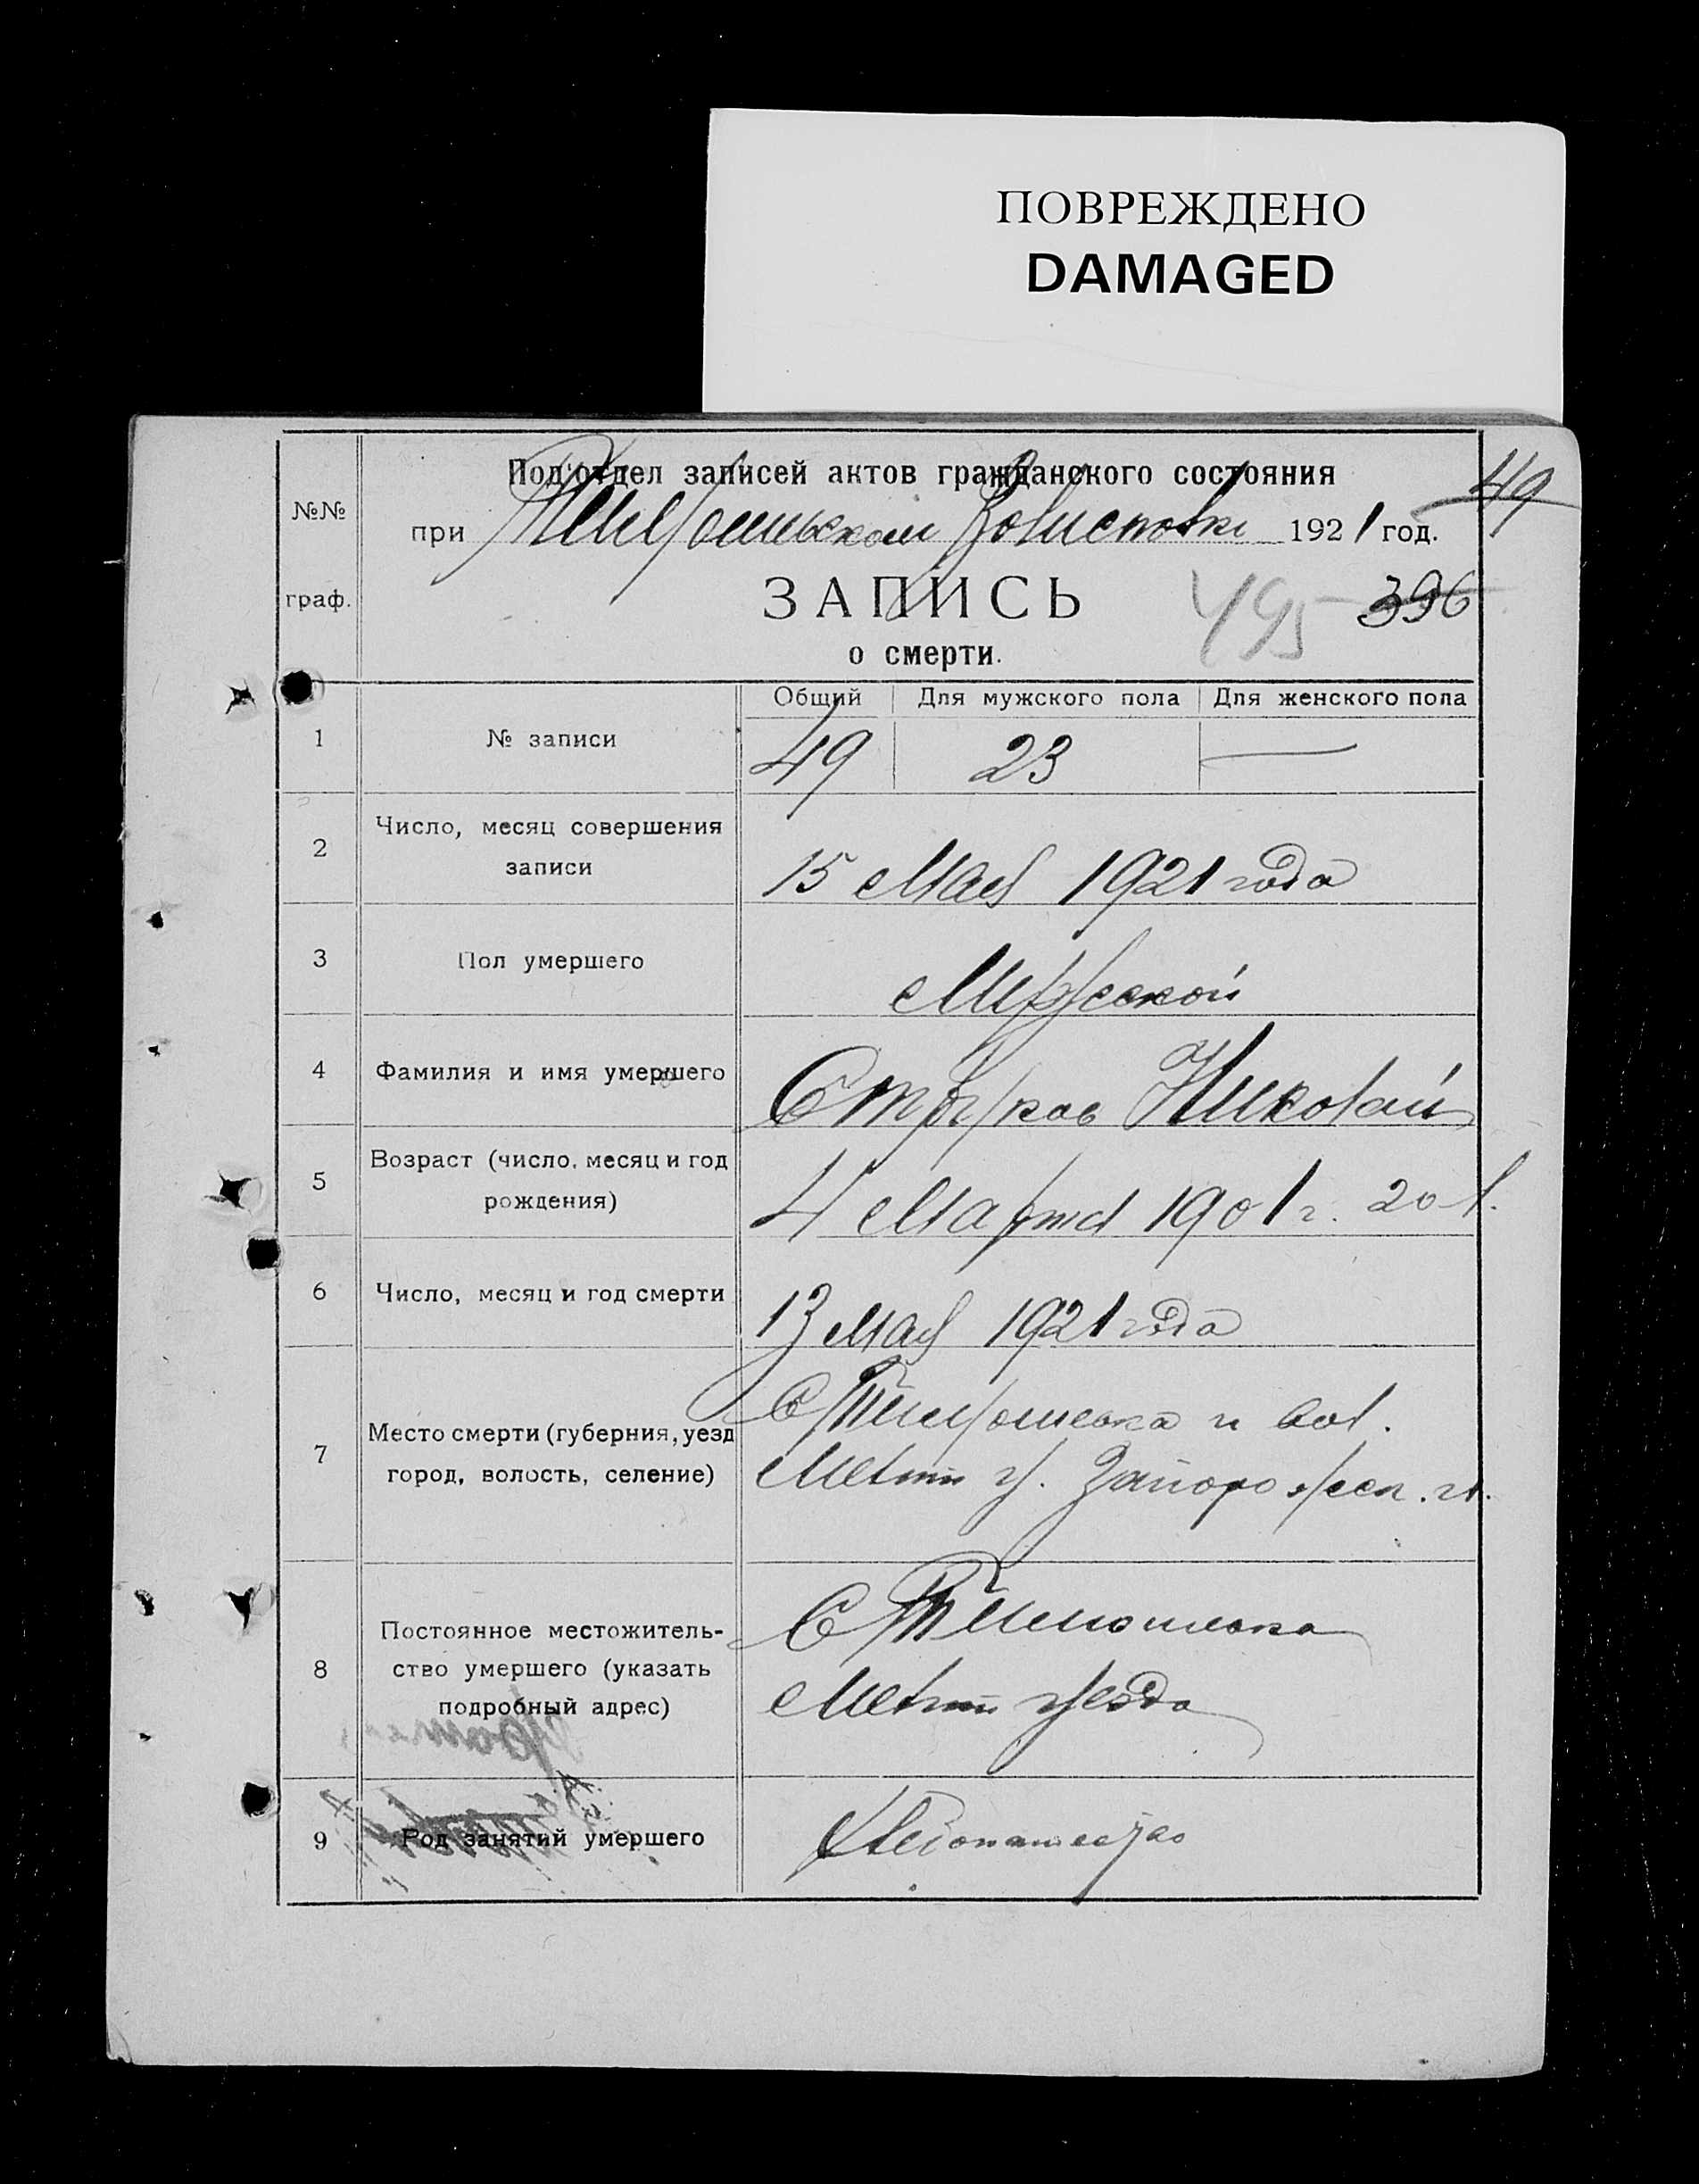 ПОВРЕЖДЕНО
DAMAGED
Под'отдел записей актов гражданского состояния
49
№№
при Тимошевском Волисполк 1921 год.
граф.
ЗАПИСЬ
495 396
о смерти.
Общий Для мужского пола Для женского пола
1 № записи 49 23 —
2 Число, месяц совершения
записи
15 Мая 1921 года
3 Пол умершего Мужской
4 Фамилия и имя умершего Струков Николай
5 Возраст (число, месяц и год
рождения)
4 Марта 1901 г. 20 л.
6 Число, месяц и год смерти 13 Мая 1921 года
7 Место смерти (губерния, уезд
город, волость, селение)
С Тимошевка и вол.
Мелит у. Запорожск. г.
8 Постоянное местожитель-
ство умершего (указать
подробный адрес)
С Тимошевка
Мелит уезда
9 Род занятий умершего